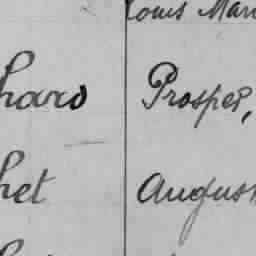 Louis Mari
hard Prosper,
het August